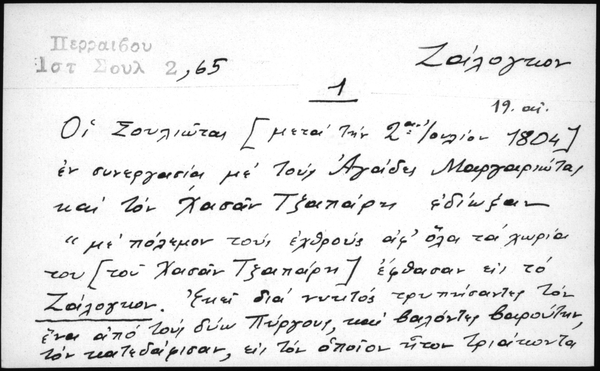 Περραιβου
Ιστ Σουλ 2,65
Ζάλογκον
1
19. αἰ.
Οἱ Σουλιῶται [μετά τήν 2αν Ἰουλίου 1804]
ἐν συνεργασίᾳ μέ τούς Ἀγάδες Μαργαριώτας
καί τόν Χασάν Τζαπάρη ἐδίωξαν
"μέ πόλεμον τούς ἐχθρούς ἀφ' ὅλα τά χωρία
του [τοῦ Χασάν Τζαπάρη] ἔφθασαν εἰς τό
Ζάλογκον. Ἐκεῖ διά νυκτός τρυπήσαντες τόν
ἕνα ἀπό τούς δύω Πύργους, καί βαλόντες βαρούτην,
τόν κατεδάφισαν, εἰς τόν ὁποῖον ἦτον τριάκοντα